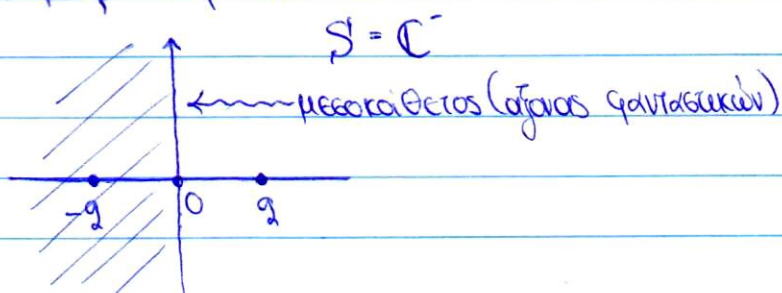 S = ℂ⁻
μεσοκάθετος (άξονας φανταστικών)
-2 0 2